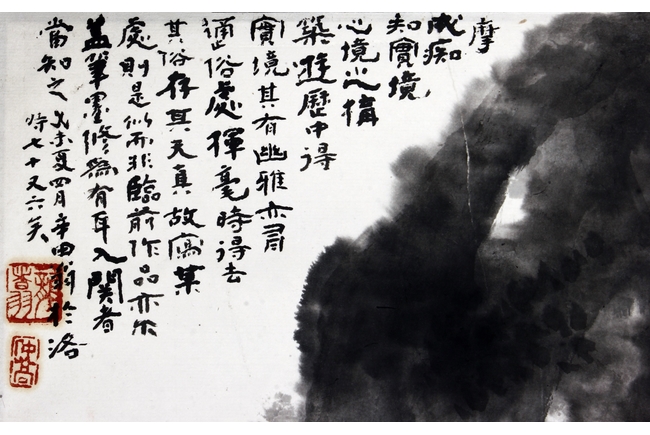 摩
成痴
知實境
心境之構
築遊歷中得
實境其有幽雅亦肩
通俗處揮毫時得去
其俗存其天真故寫某
處則是似而非臨前作品亦尔
蓋筆墨修為有年入關者
當知之
未夏四月 於洛
時七十又六矣